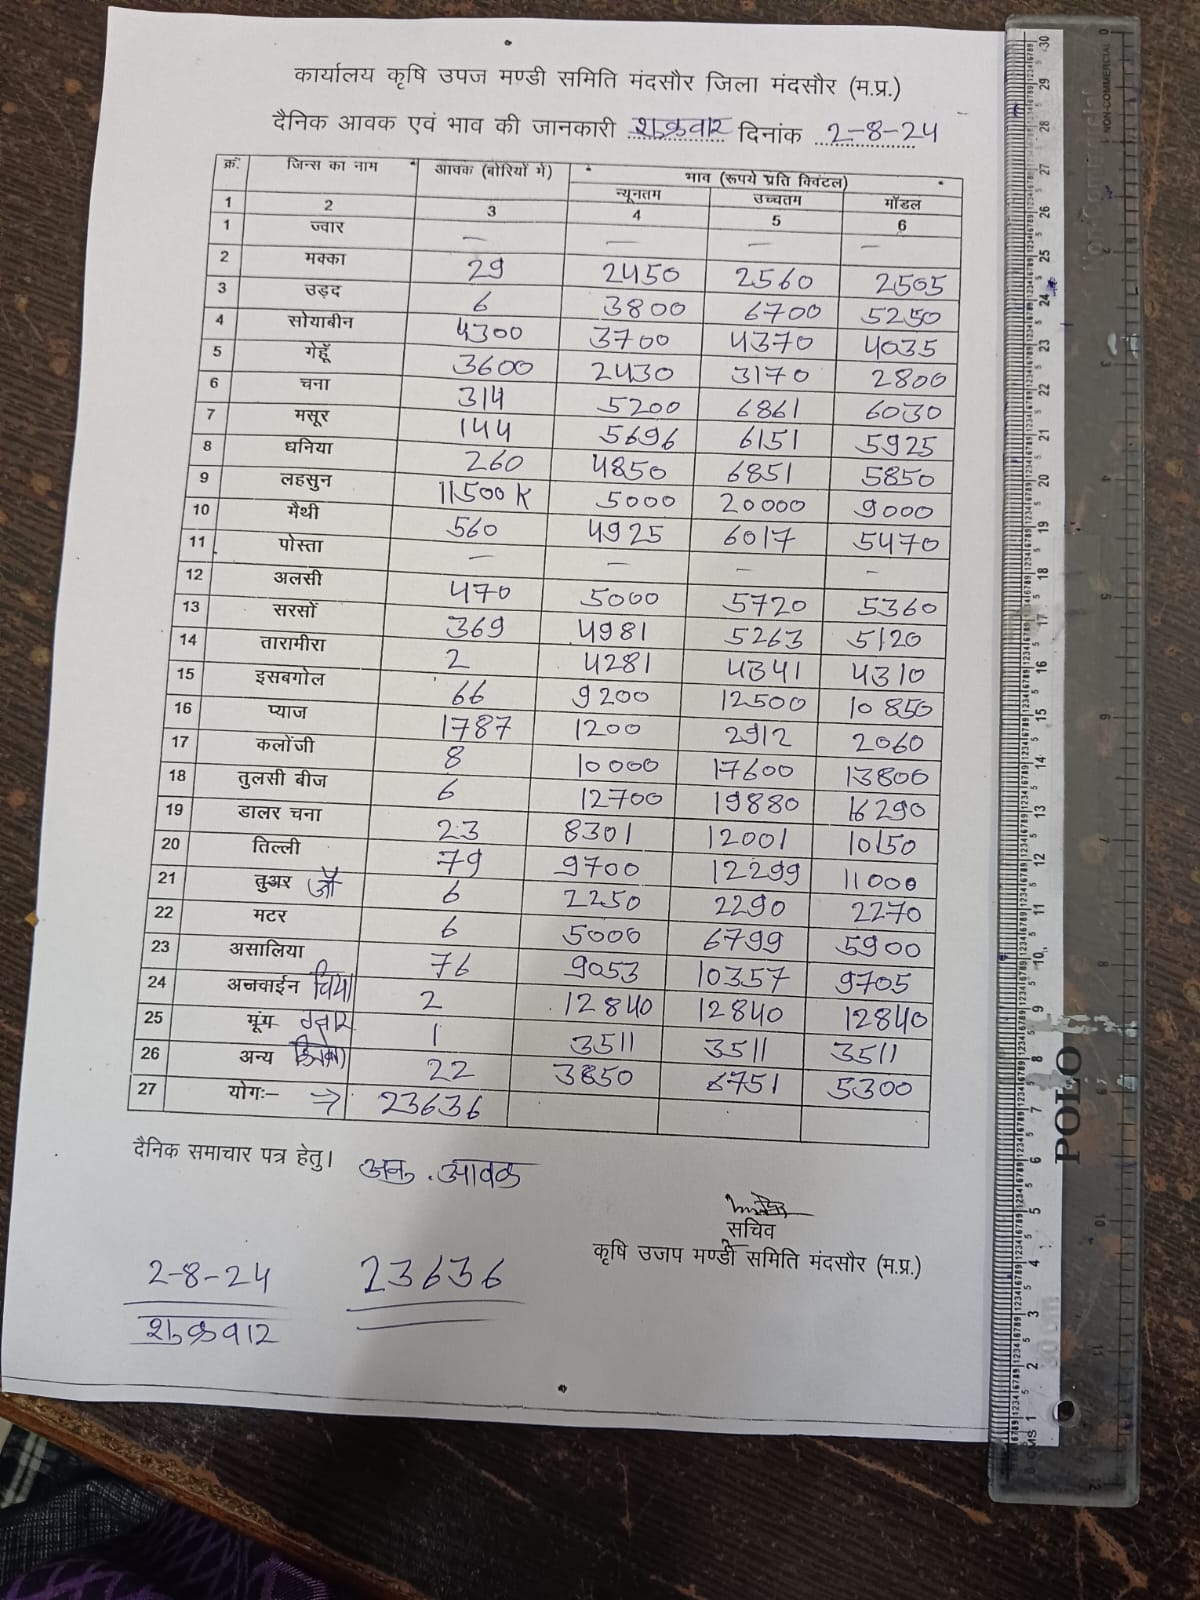 कार्यालय कृषि उपज मण्डी समिति मंदसौर जिला मंदसौर (म.प्र.)
दैनिक आवक एवं भाव की जानकारी शुक्रवार दिनांक 2-8-24
क्रं. जिन्स का नाम आवक (बोरियों में) भाव (रूपये प्रति क्विंटल)
न्यूनतम उच्चतम मॉडल
1 2 3 4 5 6
1 ज्वार — — — —
2 मक्का 29 2450 2560 2505
3 उड़द 6 3800 6700 5250
4 सोयाबीन 4300 3700 4370 4035
5 गेहूॅ 3600 2430 3170 2800
6 चना 314 5200 6861 6030
7 मसूर 144 5696 6151 5925
8 धनिया 260 4850 6851 5850
9 लहसुन 11500 K 5000 20000 9000
10 मैथी 560 4925 6017 5470
11 पोस्ता — — — -
12 अलसी 470 5000 5720 5360
13 सरसों 369 4981 5263 5120
14 तारामीरा 2 4281 4341 4310
15 इसबगोल 66 9200 12500 10850
16 प्याज 1787 1200 2912 2060
17 कलोंजी 8 10000 17600 13800
18 तुलसी बीज 6 12700 19880 16290
19 डालर चना 23 8301 12001 10150
20 तिल्ली 79 9700 12299 11000
21 तुअर जौ 6 2250 2290 2270
22 मटर 6 5000 6799 5900
23 असालिया 76 9053 10357 9705
24 अजवाईन चिया 2 12840 12840 12840
25 मूंग ग्वार 1 3511 3511 3511
26 अन्य 22 3850 6751 5300
27 योगः– → 23636
दैनिक समाचार पत्र हेतु।
आवक
सचिव
कृषि उजप मण्डी समिति मंदसौर (म.प्र.)
2-8-24 23636
शुक्रवार
POLO
30 cm
NON-COMMERCIAL